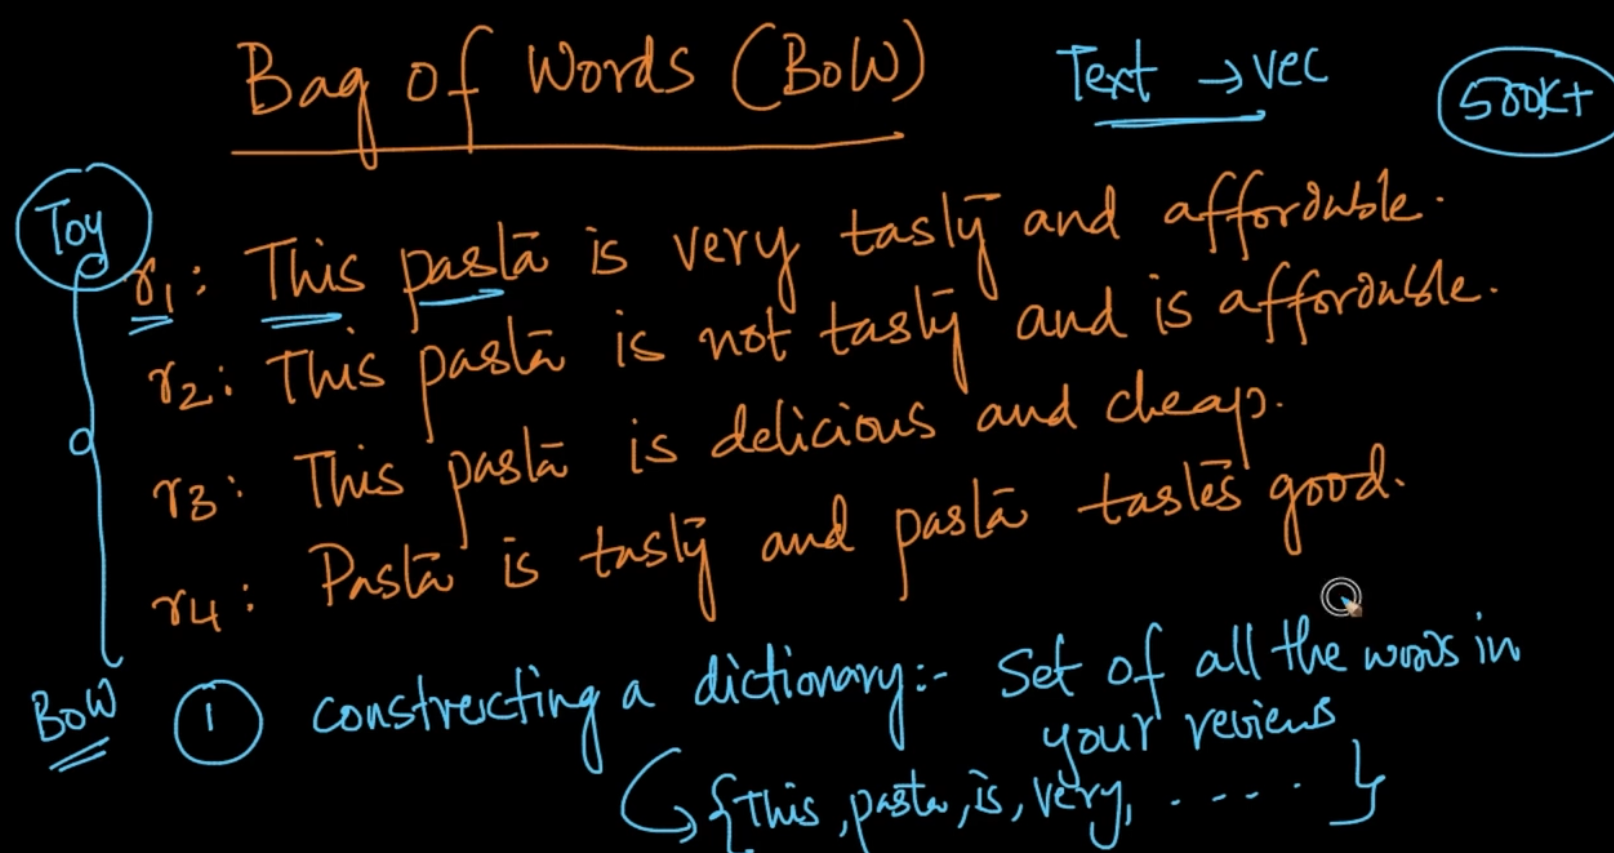 Bag of Words (BoW)
Text → vec
500K+
Toy
r1: This pasta is very tasty and affordable.
r2: This pasta is not tasty and is affordable.
r3: This pasta is delicious and cheap.
r4: Pasta is tasty and pasta tastes good.
BoW
1 constructing a dictionary:- Set of all the words in
your reviews
{This, pasta, is, very, ..... }